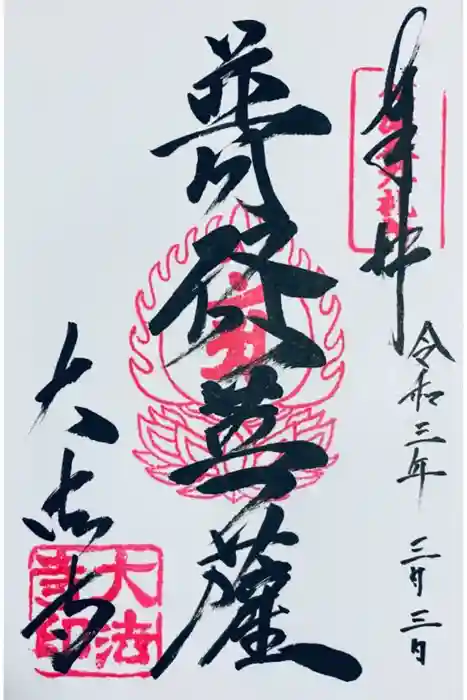 奉拝
令和三年 三月三日
普賢菩薩
大法寺
大法
寺印